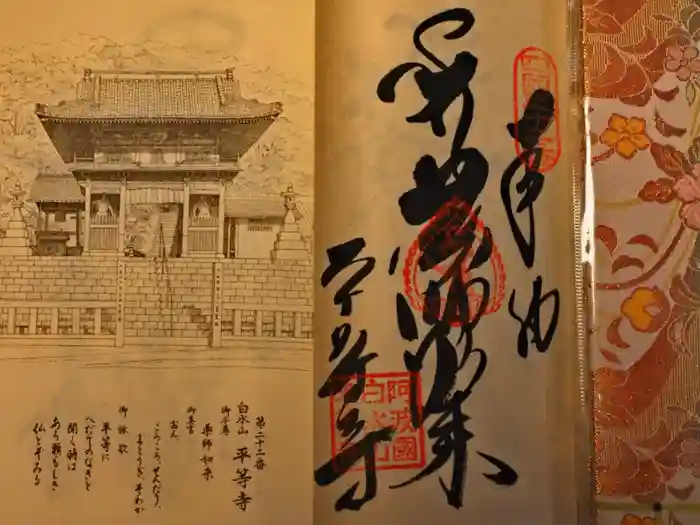 奉納
薬師如来
平等寺
阿波國
白水山
第二十二番
白水山 平等寺
御本尊
薬師如来
御真言
おん、
ころころ、せんだり、
まとうぎ、そわか
御詠歌
平等に
へだてのなきと
聞く時は
あら頼もしき
仏とぞみる